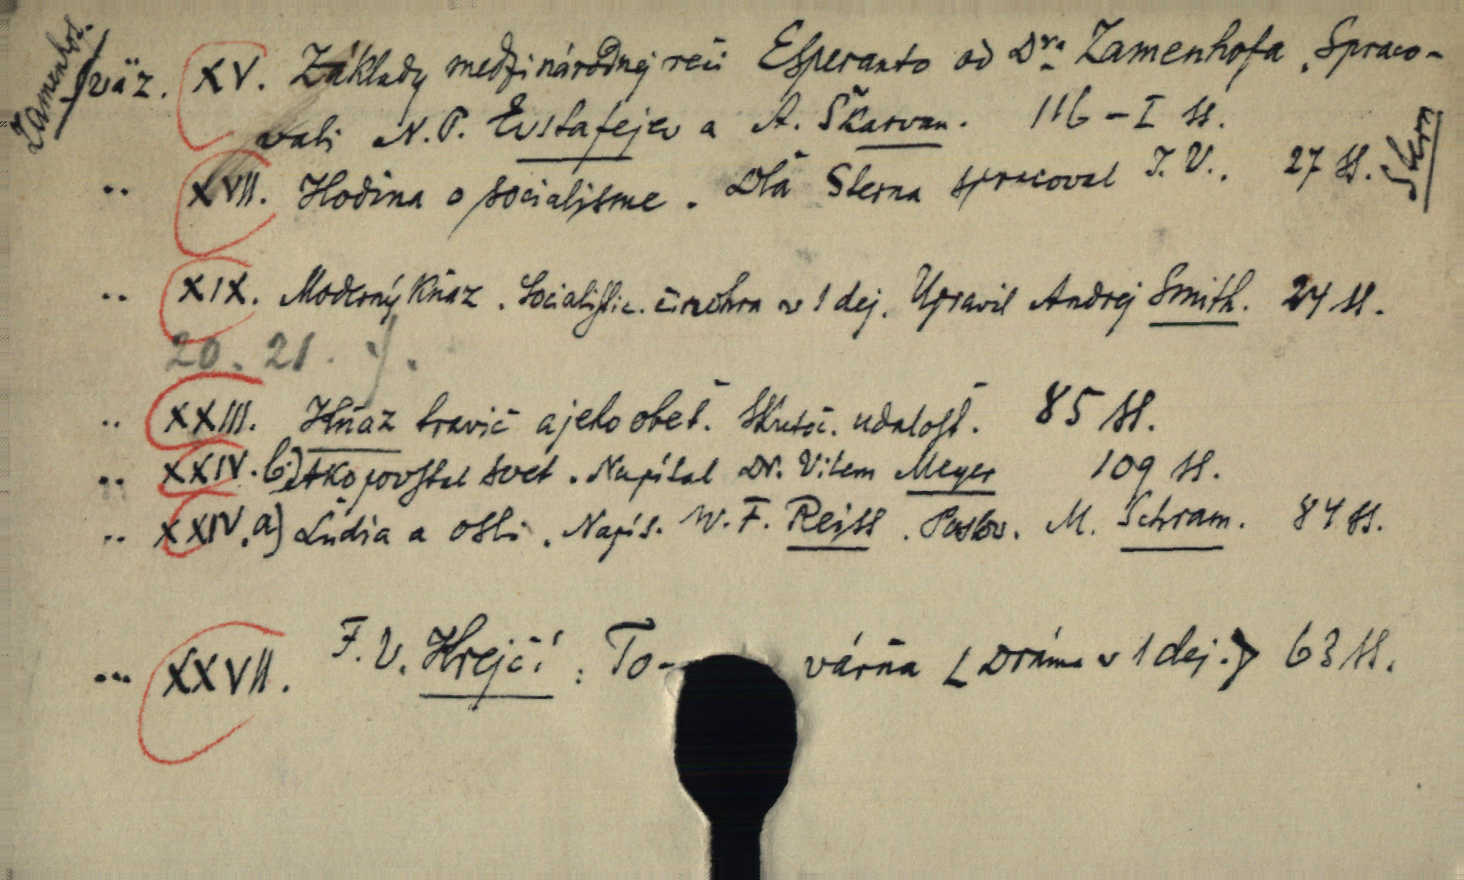 Zamenhof.
Sväz. XV. Základy medzinárodnej reči Esperanto od Dra. Zamenhofa. Spraco-
vali N. P. Evstafejev a A. Škarvan. 116 - I ss.
Stern
" XVII. Hodina o socialisme. Dľa Sterna spracoval I. V.. 27 ss.
" XIX. Moderný kňaz. Socialistic. činohra v 1 dej. Upravil Andrej Smith. 24 ss.
20. 21.
" XXIII. Kňaz travič a jeho obeť. Skutoč. udalosť. 85 ss.
" XXIV. b) Ako povstal svet. Napísal Dr. Vilem Meyer 109 ss.
" XXIV. a) Ľudia a osli. Napís. W. F. Reiss. Poslov. M. Schram. 84 ss.
" XXVII. F. V. Krejčí: To- várňa (Dráma v 1 dej.) 63 ss.